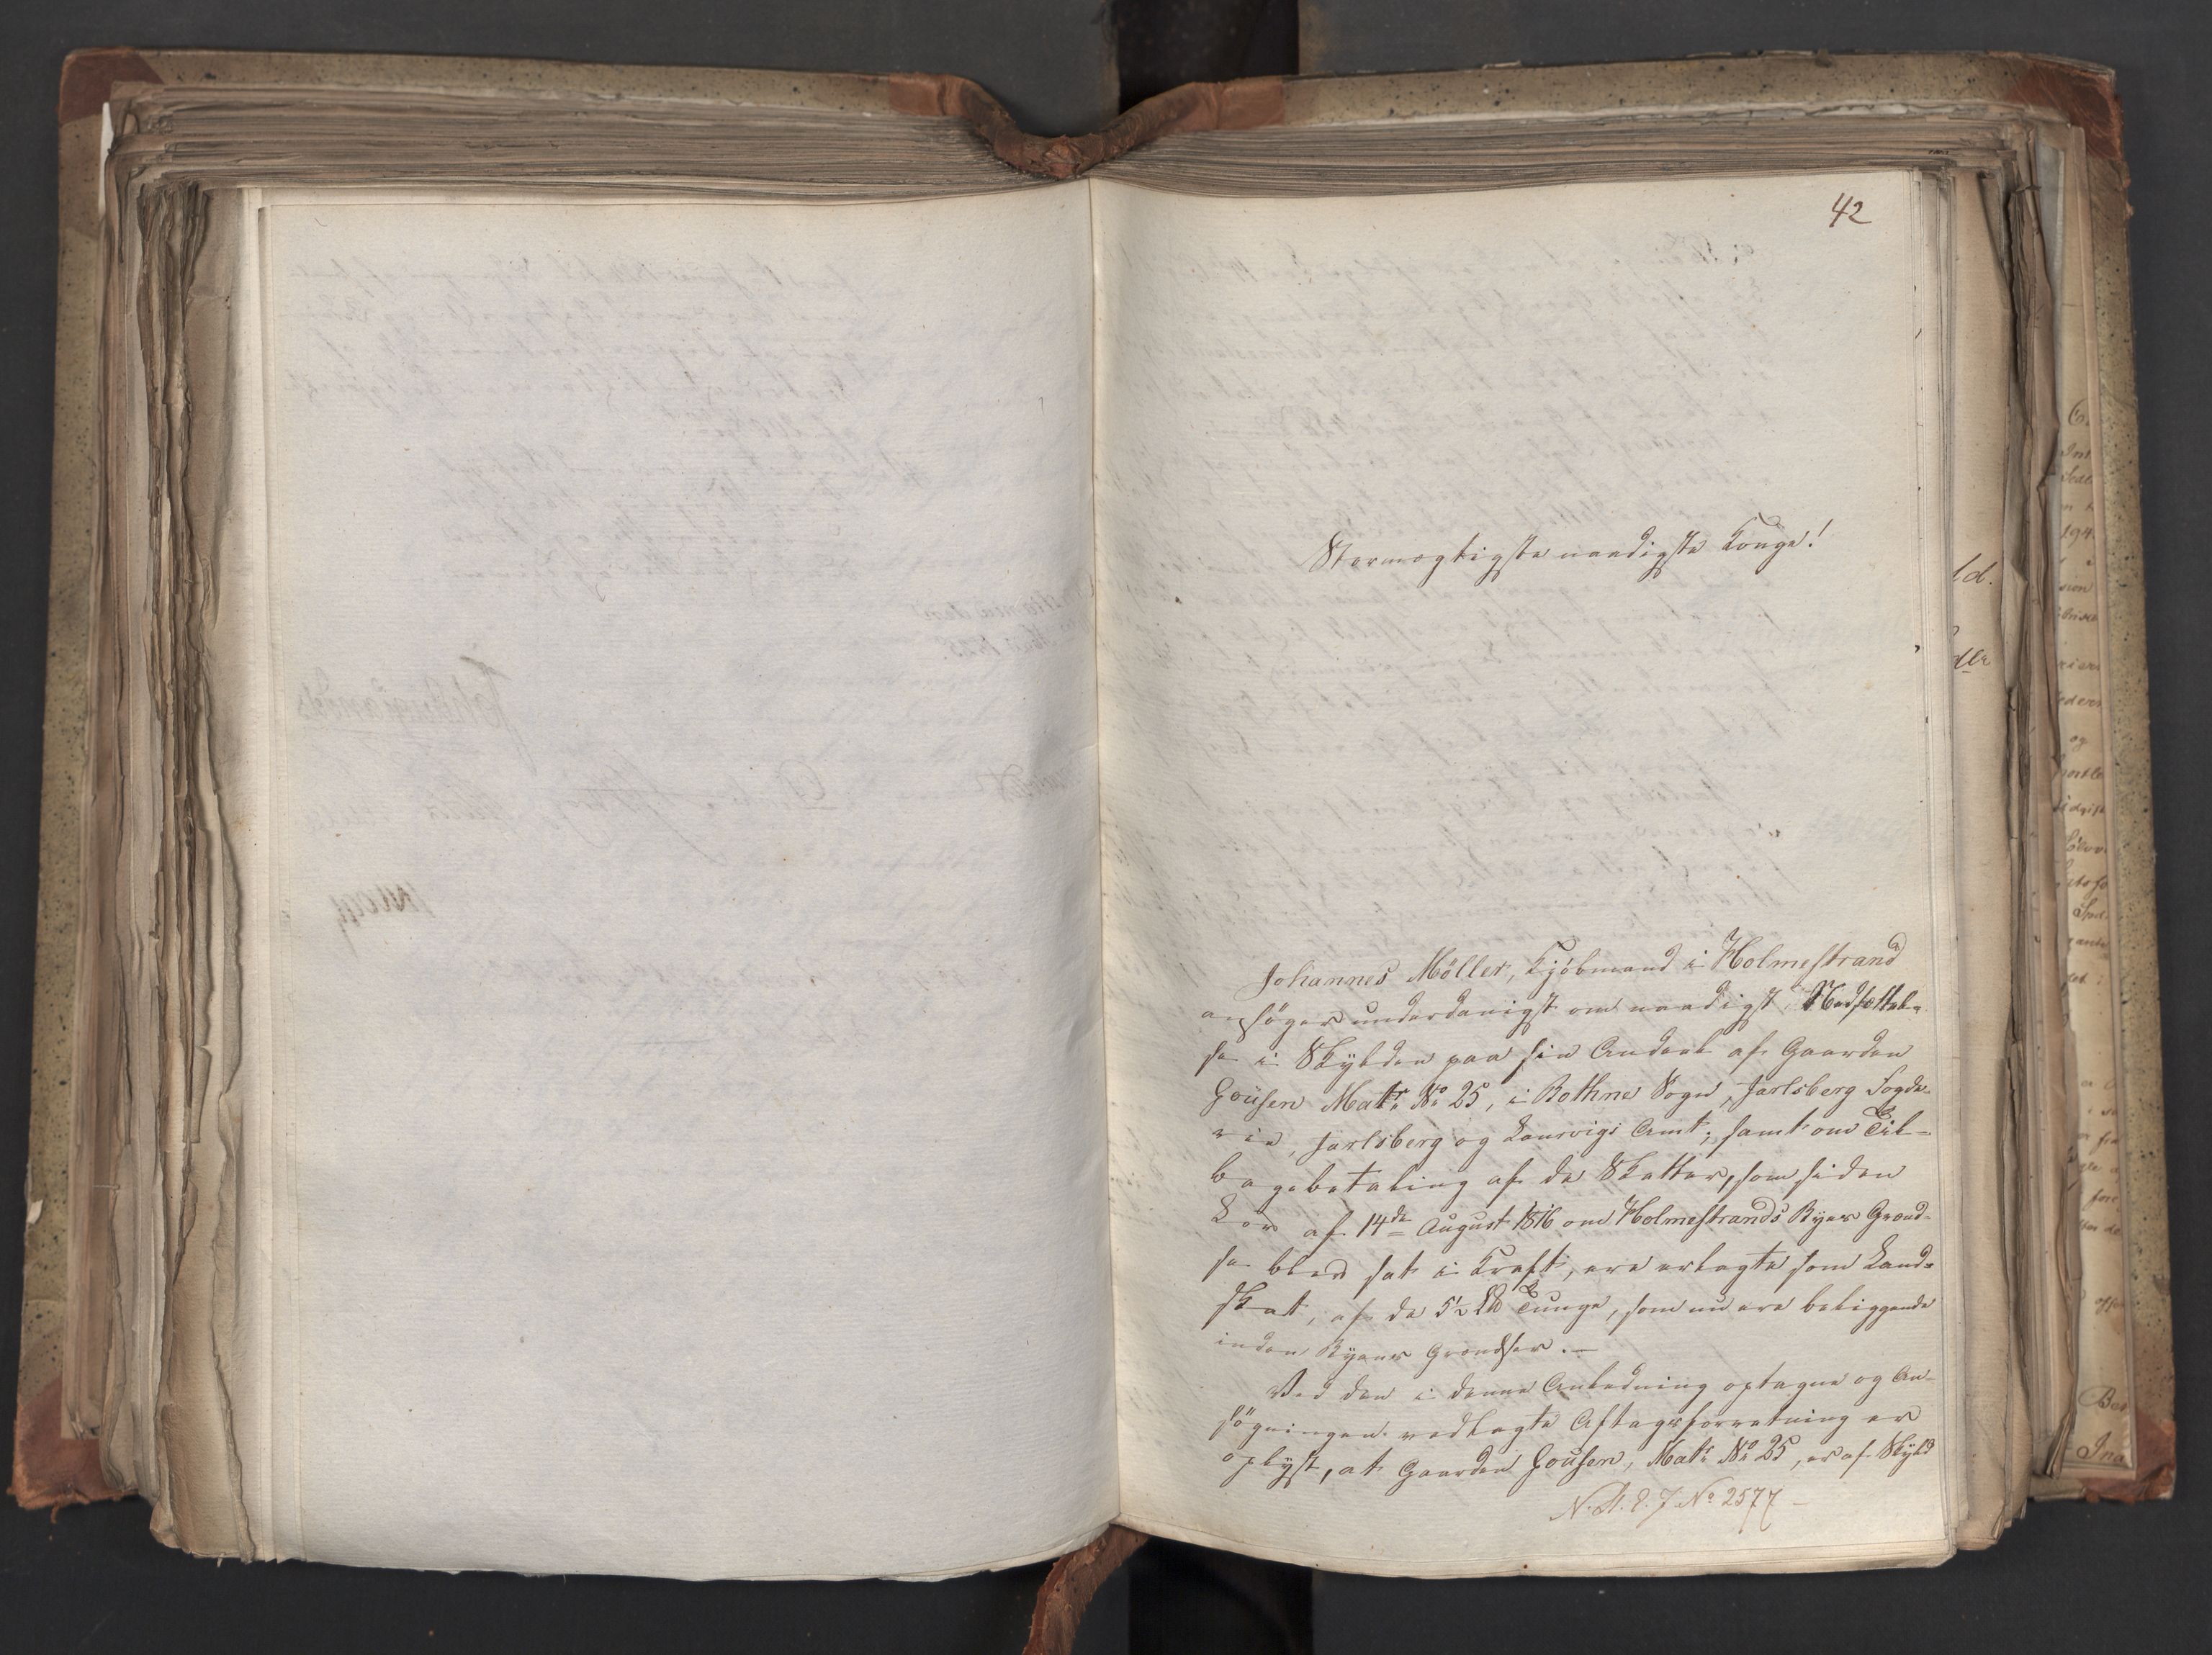 42
Stormægtigste naadigste Konge!
Johannes Möller, Kjöbmand i Holmestrand
ansöger underdanigst om naadigst Nedsættel-
se i Skylden paa sin Andeel af Gaarden
Gousen Matr. No 25, i Bothne Sogn, Jarlsberg Fogde-
rie, Jarlsberg og Laurvigs Amt; samt om Til-
bagebetaling af de Skatter, som siden
Lov af 14de August 1816 om Holmestrands Byes Grænd-
se blev sat i Kraft, ere erlagte som Land-
skat, af de 5½ LB Tunge, som nu ere beliggende
inden Byens Grændser. —
Ved den i denne Anledning optagne og An-
sögningen vedlagte Aftagsforretning er
oplyst, at Gaarden Gousen, Matr. No 25, er af Skyld
No 2577 —